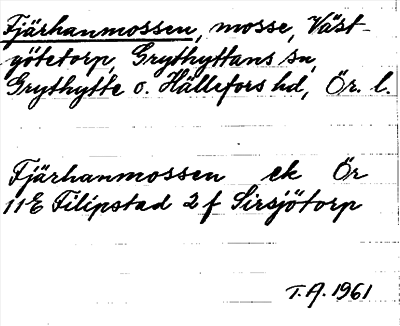 Fjärhanmossen, mosse, Väst-
götetorp, Grythyttans sn,
Grythytte o. Hällefors hd, Ör. l.
Fjärhanmossen ek Ör
11E Filipstad 2 f Sirsjötorp
T.A. 1961